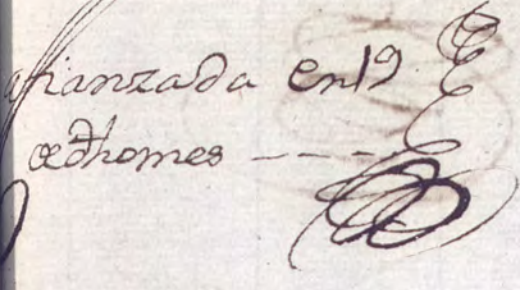 afianzada en 19
de dho mes